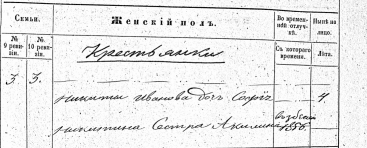 Семьи.
Женскій полъ.
Во временной отлучкѣ.
Нынѣ на лицо.
№ 9 ревизіи.
№ 10 ревизіи.
Съ котораго времени.
Лѣта.
Крестьянки
3 3.
Никиты Иванова дочь Софія 4.
Никитина Сестра Акилина
1856.